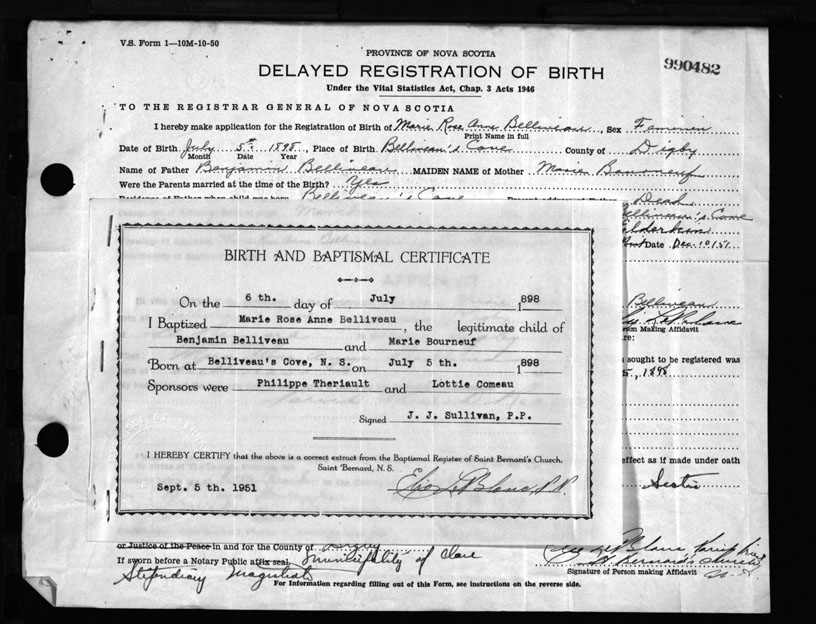 V.S. Form 1—10M-10-50
PROVINCE OF NOVA SCOTIA
990482
DELAYED REGISTRATION OF BIRTH
Under the Vital Statistics Act, Chap. 3 Acts 1946
TO THE REGISTRAR GENERAL OF NOVA SCOTIA
I hereby make application for the Registration of Birth of Marie Rose Anne Belliveau, Sex
Print Name in full
Date of Birth July 5th 1898, Place of Birth Belliveau's Cove County of Digby
Month Date Year
Name of Father Benjamin Belliveau MAIDEN NAME of Mother Marie Bourneuf
Were the Parents married at the time of the Birth? Yes
Belliveau's Cove Dead
Belliveau's Cove
Date Dec. 10/51
BIRTH AND BAPTISMAL CERTIFICATE
On the 6 th. day of July 1898
I Baptized Marie Rose Anne Belliveau, the legitimate child of
Benjamin Belliveau and Marie Bourneuf
Born at Belliveau's Cove, N. S. on July 5 th. 1898
Sponsors were Philippe Theriault and Lottie Comeau
Signed J. J. Sullivan, P.P.
I HEREBY CERTIFY that the above is a correct extract from the Baptismal Register of Saint Bernard's Church.
Saint Bernard, N. S.
Sept. 5 th. 1951
Belliveau
son Making Affidavit
re:
sought to be registered was
5, 1898
effect as if made under oath
or Justice of the Peace in and for the County of Digby
If sworn before a Notary Public affix seal. Municipality of Clare
Stipendiary Magistrate
Signature of Person making Affidavit
For Information regarding filling out of this Form, see instructions on the reverse side.